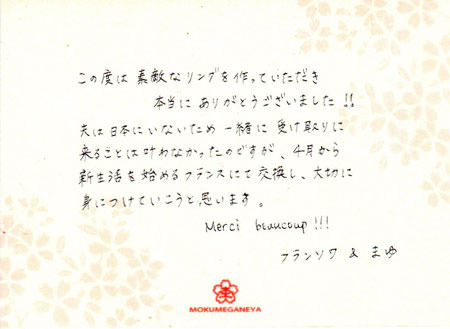 この度は 素敵なリングを作っていただき
本当に ありがとうございました!!
夫は日本にいないため 一緒に 受け取りに
来ることは叶わなかったのですが、4月から
新生活を始めるフランスにて交換し、大切に
身につけていこうと思います。
Merci beaucoup!!!
フランソワ & まゆ
MOKUMEGANEYA